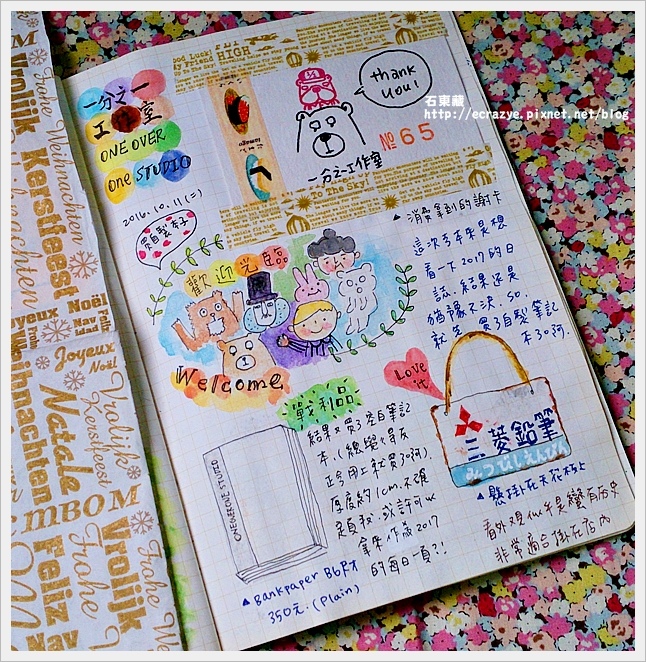 一分之一
工作室
ONE OVER
one STUDIO
HIGH
thank
you!
石東藏
http://ecrazye.pixnet.net/blog
№ 65
一分之一工作室
To the Sky!
2016.10.11(二)
▲消費拿到的謝卡
這次去本來是想
看一下2017的日
誌,結果還是
猶豫不決,so.
就先買了自製筆記
本了啊.
歡迎光臨
Welcome
戰利品
Love it
結果又買了空白筆記
本,(總覺大友
正合用上就買了啊).
厚度約1cm.不確
拿來作為2017
的每日一頁?!
ONE OVER ONE STUDIO
▲Bankpaper B6尺寸
350元.(Plain)
三菱鉛筆
みつびしえんぴつ
▲懸掛在天花板上
看外觀似乎是蠻有歷史
非常適合掛在店內
Vrolijk
Kerstfeest
Frohe Weihnachten
Joyeux
Noël
Feliz
Navidad
Joyeux
Noël
Weihnachten
Natale
Vrolijk
Kerstfeest
MBOM
Feliz
Vrolijk
Frohe